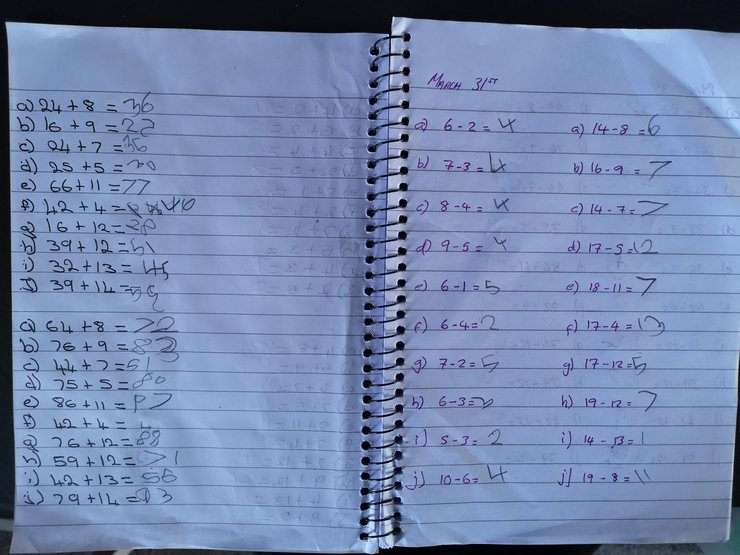 a) 24 + 8 = 36
b) 16 + 9 =
c) 24 + 7 = 36
d) 25 + 5 = 30
e) 66 + 11 = 77
f) 42 + 4 = 46
g) 16 + 12 = 28
h) 39 + 12 = 51
i) 32 + 13 = 45
j) 39 + 14 =
a) 64 + 8 = 72
b) 76 + 9 =
c) 44 + 7 = 51
d) 75 + 5 = 80
e) 86 + 11 = 97
f) 42 + 4 =
g) 76 + 12 = 88
h) 59 + 12 = 71
i) 42 + 13 =
j) 79 + 14 = 93
MARCH 31ST
a) 6 - 2 = 4
b) 7 - 3 = 4
c) 8 - 4 = 4
d) 9 - 5 = 4
e) 6 - 1 = 5
f) 6 - 4 = 2
g) 7 - 2 = 5
h) 6 - 3 =
i) 5 - 3 = 2
j) 10 - 6 = 4
a) 14 - 8 = 6
b) 16 - 9 = 7
c) 14 - 7 = 7
d) 17 - 5 = 12
e) 18 - 11 = 7
f) 17 - 4 = 13
g) 17 - 12 = 5
h) 19 - 12 = 7
i) 14 - 13 = 1
j) 19 - 8 = 11